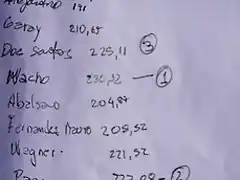 191
Garay 210,65
Dos Santos 225,11 ③
Nacho 230,32 — ①
Abelsao 204,87
Fernandez 205,52
Wagner. 221,52
②